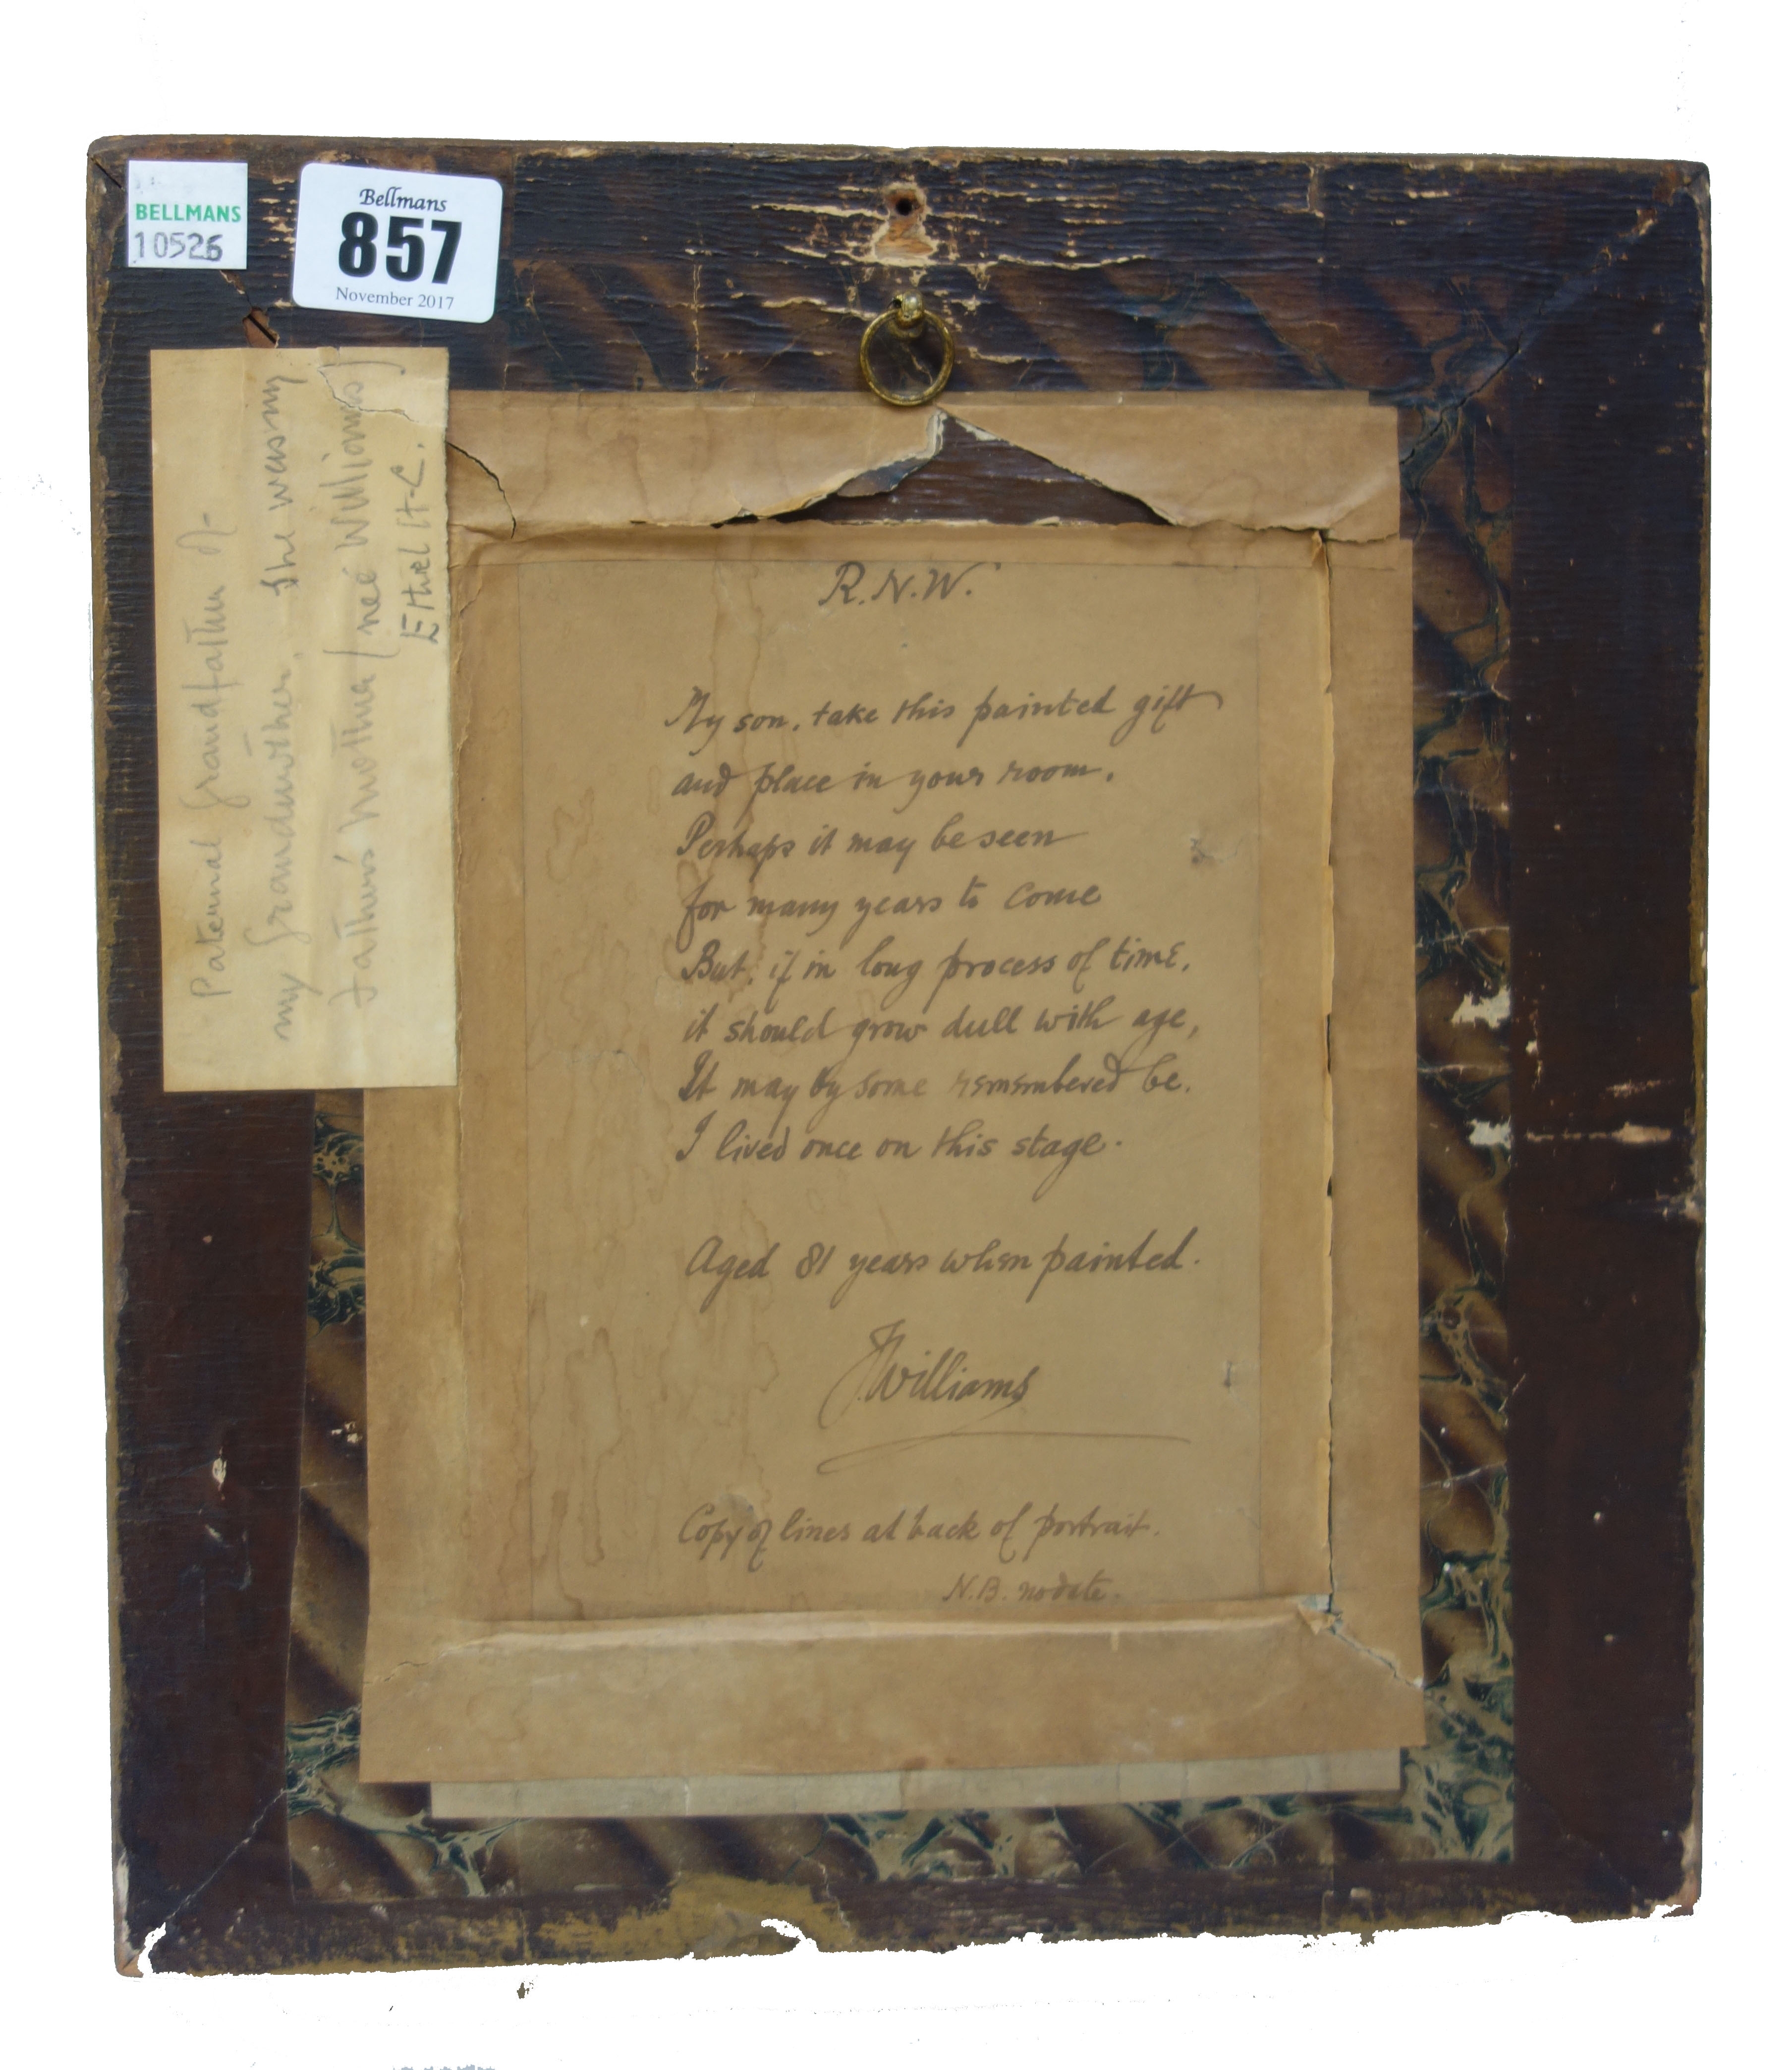 BELLMANS
10526
Bellmans
857
November 2017
Paternal Grandfather of
my Grandmother. She was my
Father's Mother (neé Williams)
Ethel H-C.
R.N.W.
My son, take this painted gift
and place in your room.
Perhaps it may be seen
for many years to come
But, if in long process of time,
it should grow dull with age,
It may by some remembered be.
I lived once on this stage.
Aged 81 years when painted.
JWilliams
Copy of lines at back of portrait.
N.B. no date.